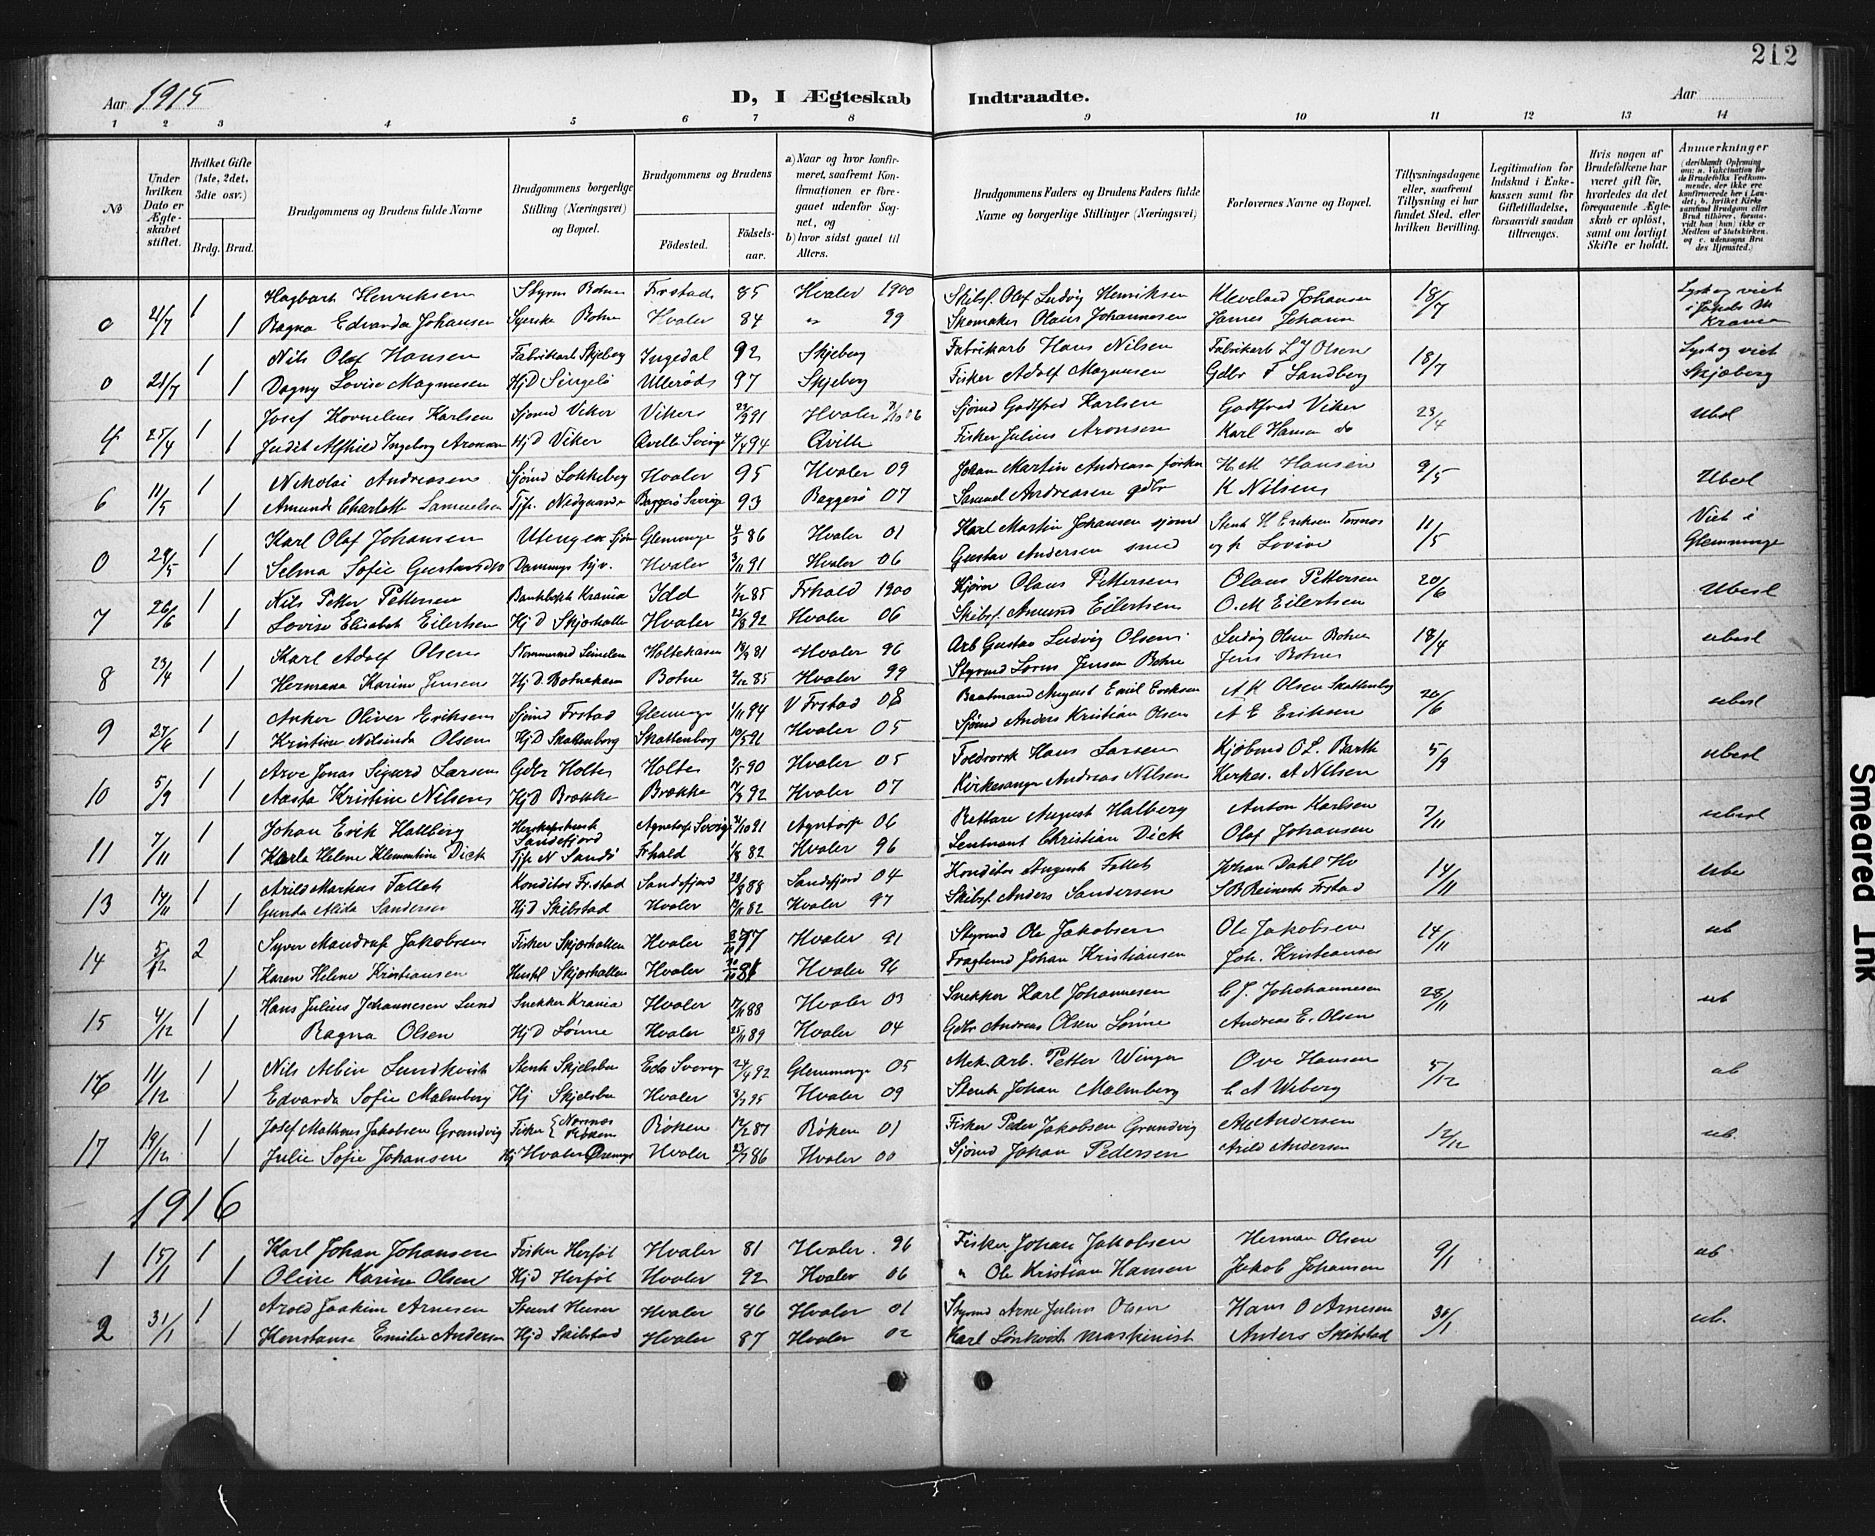 212
Aar 1915
D, I Ægteskab Indtraadte.
Aar
1 2 3 4 5 6 7 8 9 10 11 12 13 14
№
Under hvilken Dato er Ægteskabet stiftet.
Hvilket Gifte (1ste, 2det, 3die osv.)
Brdg. Brud.
Brudgommens og Brudens fulde Navne
Brudgommens borgerlige Stilling (Næringsvei) og Bopæl.
Brudgommens og Brudens
Födested. Födselsaar.
a) Naar og hvor konfirmeret, saafremt Konfirmationen er foregaaet udenfor Sognet, og
b) hvor sidst gaaet til Alters.
Brudgommens Faders og Brudens Faders fulde Navne og borgerlige Stillinger (Næringsvei)
Forlovernes Navne og Bopæl.
Tillysningsdagene eller, saafremt Tillysning ei har fundet Sted, efter hvilken Bevilling.
Legitimation for Indskud i Enkekassen samt for Giftetilladelse, forsaavidt saadan tiltrænges.
Hvis nogen af Brudefolkene har været gift för, hvorledes da det foregaaende Ægteskab er oplöst, samt om lovligt Skifte er holdt.
Anmerkninger
0 21/7 1 Hagbart Henriksen Styrm Botne Frstad 85 Hvaler 1900 Skibsf. Olaf Ludvig Henriksen Kleveland Johansen 18/7 Lyst og viet
1 Ragna Edvarda Johansen Syerske Botne Hvaler 84 " 99 Skomaker Olaus Johannesen James Johann i Jakobs M Krania
0 21/7 1 Nils Olaf Hansen Fabrikarb Skjeberg Ingedal 92 Skjeberg Fabrikarb Hans Nilsen Fabrikarb L J Olsen 18/7 Lyst og viet
1 Dagny Lovise Magnusen Hjd Singelö Ulleröd 97 Skjeberg Fisker Adolf Magnusen Gdbr F Sandberg Skjeberg
4 25/4 1 Josef Kornelius Karlsen Sjömd Viker Viker 23/9 91 Hvaler 06 Sjömd Godtfred Karlsen Godtfred Viker 23/4 Ubesl
1 Judit Alfhild Ingeborg Aronsen Hjd Viker Qville Sverige 94 Qville Fisker Julius Aronsen Karl Hansen do
6 11/5 1 Nikolai Andreasen Sjömd Lokkeberg Hvaler 95 Hvaler 09 Johan Martin Andreasen fisker H. M Hansen 9/5 Ubesl
1 Amunda Charlotte Samuelsen Tjp. Nedgaarden Baggerö Sverige 93 Baggerö 07 Samuel Andreasen gdbr K Nilsen
0 29/5 1 Karl Olaf Johansen Utengen Sjöm Glemminge 86 Hvaler 01 Karl Martin Johansen sjömd Stenh H Eriksen 11/5 Viet i
1 Selma Sofie Gustavsdtr hjv. Hvaler 3/11 91 Hvaler 06 Gustav Andersen smed Glemminge
7 26/6 1 Nils Petter Pettersen Krania Idd 1/12 85 Frhald 1900 Kjörer Olaus Pettersen Olaus Pettersen 20/6 Ubesl
1 Lovise Elisabet Eilertsen Hjd Skjærhallen Hvaler 22/8 92 Hvaler 06 Skibsf. Amund Eilertsen O. M Eilertsen
8 23/4 1 Karl Adolf Olsen Holtekasen 81 Hvaler 96 Arb Gustav Ludvig Olsen Ludvig Olsen Botne 18/4 ubesl
1 Hermana Karine Jensen Hjd. Botnekasen Botne 85 Hvaler 99 Styrmd Sören Jensen Botne Jens Botne
9 27/6 1 Anker Oliver Eriksen Sjömd Frstad Glemminge 1/11 94 V Frstad 08 Baatsmand August Emil Eriksen A K Olsen Skattenborg 20/6 ubesl
1 Kristine Nilsinda Olsen Hjd Skattenborg Skattenborg 10/5 91 Hvaler 05 Sjömd Anders Kristian Olsen A E Eriksen
10 5/9 1 Arve Jonas Sigurd Larsen Gdbr Holte Holte 2/5 90 Hvaler 05 Toldvagt Hans Larsen Kjöbmd O L. Barth 5/9 ubesl
1 Aasta Kristine Nilsen Hjd Brække Brække 92 Hvaler 07 Kirkesanger Andreas Nilsen Kirkes. A Nilsen
11 7/11 1 Johan Erik Hallberg Sandefjord Agnetorp Sverige 31/10 91 Agntorp 06 Rettare August Halberg Anton Karlsen 7/11 ubesl
1 Karla Helene Klementine Dick Tjp N Sandö Frhald 1/8 82 Hvaler 96 Lentnant Christian Dick Olaf Johansen
13 14/11 1 Arild Markus Falleth Konditor Frstad Sandefjord 28/8 88 Sandefjord 04 Konditor August Falleth Johan Dahl Hv 14/11 ube
1 Gunda Alida Sandersen Hjd Skibstad Hvaler 82 Hvaler 97 Skibsf. Anders Sandersen S B Reinerts Frstad
14 5/12 2 Syver Mandrup Jakobsen Fisker Skjærhallen Hvaler 77 Hvaler 91 Styrmd Ole Jakobsen Ole Jakobsen 14/11 ub
1 Karen Helene Kristiansen Hustel Skjærhallen Hvaler 81 Hvaler 96 Fragtemd Johan Kristiansen Joh. Kristiansen
15 4/12 1 Hans Julius Johannesen Lund Snekker Krania Hvaler 88 Hvaler 03 Snekker Karl Johannesen C J. Johohannesen 28/11 ub
1 Ragna Olsen Hjd Lönne Hvaler 25/11 89 Hvaler 04 Gdbr Andreas Olsen Lönne Andreas E. Olsen
16 11/12 1 Nils Albin Lundkvist Stenh Skjelsbu Edo Sverig 24/4 92 Glemminge 05 Mek. Arb. Petter Winger Ove Hansen 5/12 ub
1 Edvarda Sofie Malmberg Hj Skjelsbu Hvaler 95 Hvaler 09 Stenh Johan Malmberg C A Weberg
17 19/12 1 Josef Mathias Jakobsen Grundvig Fisker Nærsnes Röken Röken 12/2 87 Röken 01 Fisker Peder Jakobsen Grundvig Andersen 12/12 ub.
1 Julie Sofie Johansen Hj Hvaler Hvaler 86 Hvaler 00 Sjömd Johan Pedersen Arild Andersen
1916
1 15/1 1 Karl Johan Johansen Fisker Herföl Hvaler 81 Hvaler. 96 Fisker Johan Jakobsen Herman Olsen 9/1 ub
1 Oline Karine Olsen Hjd Herföl Hvaler 92 Hvaler 06 " Ole Kristian Hansen Jakob Johansen
2 31/1 1 Arold Joakim Arnesen Stuert Huser Hvaler 86 Hvaler 01 Styrmd Arne Julius Olsen Hans O Arnesen 30/1 ub.
1 Konstanse Emilie Andersen Hjd Skibstad Hvaler 87 Hvaler 02 Karl Linkvist maskinist Anders Skibstad
Smeared Ink